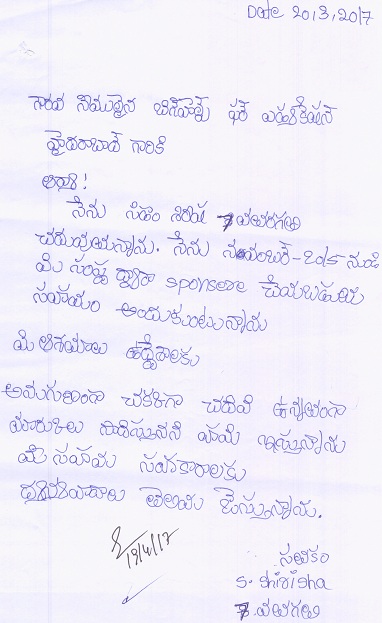 Date 20,3,2017
గౌరవ
హైదరాబాద్ గారికి
అయ్యా!
నేను 7వ తరగతి
చదువుతున్నాను. నేను నవంబర్-2015 నుండి
మీ సంస్థ ద్వారా sponsere చేయబడుతూ
సహాయం అందుకుంటున్నాను
మీ ఆశయాలు ఉద్దేశాలకు
అనుగుణంగా చక్కగా చదివి ఉన్నతంగా
మార్కులు సాధిస్తానని హామీ ఇస్తున్నాను
మీ సహాయ సహకారాలకు
ధన్యవాదాలు తెలియ చేస్తున్నాను.
19/4/17
సంతకం
S. Shirisha
7. వ తరగతి